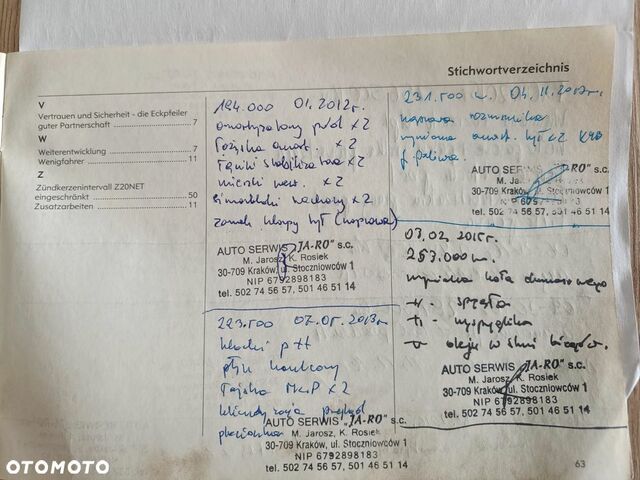 Stichwortverzeichnis
V
Vertrauen und Sicherheit - die Eckpfeiler
guter Partnerschaft ..................... 7
W
Weiterentwicklung ..................... 7
Wenigfahrer ..................... 11
Z
Zündkerzenintervall Z20NET
eingeschränkt ..................... 50
Zusatzarbeiten ..................... 11
194.000 01.2012r.
amortyzatory przód x2
łożyska amort. x2
łączniki stabilizatora x2
x2
simmeringi x2
zamek klapy tył (naprawa)
AUTO SERWIS "JA-RO" s.c.
M. Jarosz, K. Rosiek
30-709 Kraków, ul. Stoczniowców 1
NIP 6792898183
tel. 502 74 56 57, 501 46 51 14
223.500 07.05.2013r
klocki p+t
płyn hamulcowy
x2
przegląd
AUTO SERWIS "JA-RO" s.c.
M. Jarosz, K. Rosiek
30-709 Kraków, ul. Stoczniowców 1
NIP 6792898183
tel. 502 74 56 57, 501 46 51 14
231.500 04.11.2013r.
naprawa rozrusznika
wymiana amort. tył x2 KYB
f. paliwa.
AUTO SERWIS "JA-RO" s.c.
M. Jarosz, K. Rosiek
30-709 Kraków, ul. Stoczniowców 1
tel. 502 74 56 57, 501 46 51 14
03.02.2015r.
253.000
wymiana koła dwumasowego
-||- sprzęgła
-||- wysprzęglika
oleju w skrzyni biegów.
AUTO SERWIS "JA-RO" s.c.
M. Jarosz, K. Rosiek
30-709 Kraków, ul. Stoczniowców 1
NIP 6792898183
tel. 502 74 56 57, 501 46 51 14
63
OTOMOTO